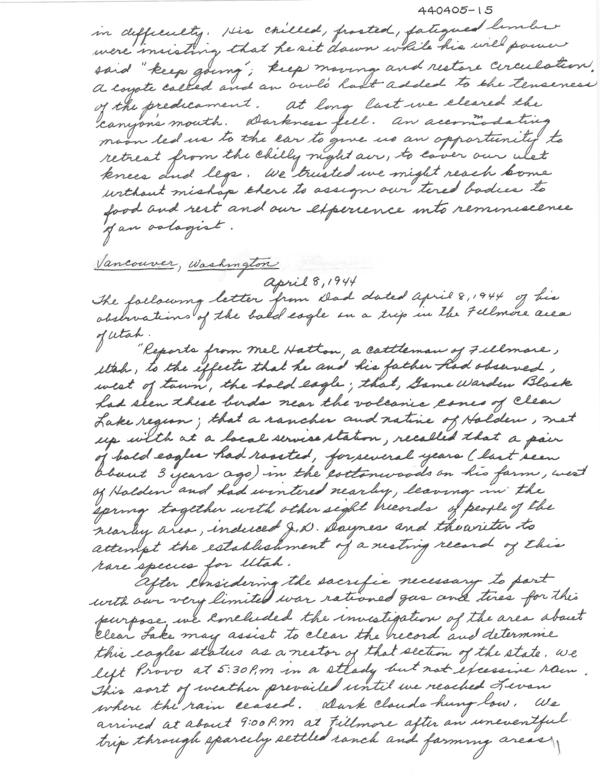 440405-15
in difficulty. His chilled, frosted, fatigued limbs
were insisting that he sit down while his will power
said "keep going"; keep moving and restore circulation.
A coyote called and an owl's hoot added to the tenseness
of the predicament. At long last we cleared the
canyon's mouth. Darkness fell. An accomodating
moon led us to the car to give us an opportunity to
retreat from the chilly night air, to cover our wet
knees and legs. We trusted we might reach home
without mishap there to assign our tired bodies to
food and rest and our experience into reminiscence
of an oologist.
Vancouver, Washington
April 8, 1944
The following letter from Dad dated April 8, 1944 of his
observations of the bald eagle on a trip in the Fillmore area
of Utah.
"Reports from Mel Hatton, a cattleman of Fillmore,
Utah, to the effects that he and his father had observed,
west of town, the bald eagle; that, Game Warden Black
had seen these birds near the volcanic cones of Clear
Lake region; that a rancher and native of Holden, met
up with at a local service station, recalled that a pair
of bald eagles had roosted, for several years (last seen
about 3 years ago) in the cottonwoods on his farm, west
of Holden and had wintered nearby, leaving in the
spring together with other sight records of people of the
nearby area, induced J.D. Daynes and the writer to
attempt the establishment of a nesting record of this
rare species for Utah.
After considering the sacrific necessary to part
with our very limited war rationed gas and tires for this
purpose, we concluded the investigation of the area about
Clear Lake may assist to clear the record and determine
this eagles status as a nestor of that section of the state. We
left Provo at 5:30 P.m in a steady but not excessive rain.
This sort of weather prevailed until we reached Levan
where the rain ceased. Dark clouds hung low. We
arrived at about 9:00 P.M at Fillmore after an uneventful
trip through sparcely settled ranch and farming areas